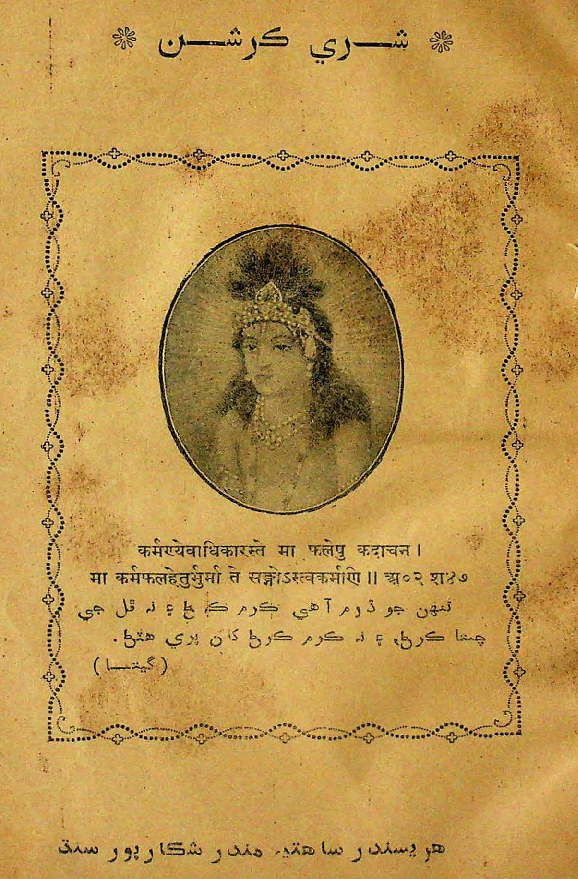 شري ڪرشن
कर्मण्येवाधिकारस्ते मा फलेषु कदाचन ।
मा कर्मफलहेतुर्भुर्मा ते सङ्गोऽस्त्वकर्मणि ॥ अ०२ श४७
تنهن جو ڌرم آهي ڪرم ڪرڻ ۽ نہ ڦل جي
چنتا ڪرڻ، ۽ نہ ڪرم ڪرڻ کان پري هٽڻ.
(گيتا)
هريسندر ساهتيہ مندر شڪارپور سنڌ